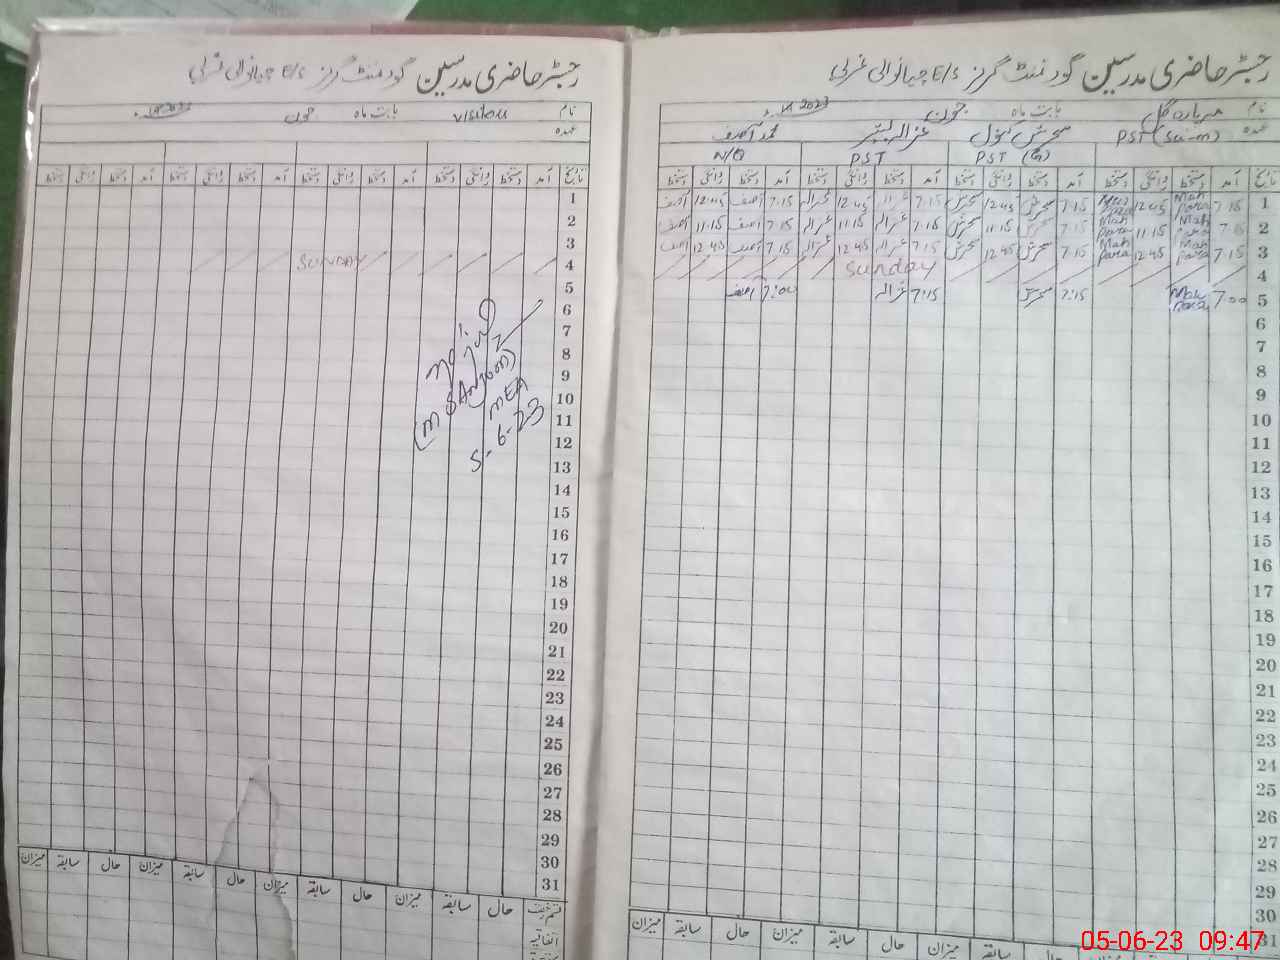 رجسٹر حاضری مدرسین گورنمنٹ گرلز E/S چیانوالی غربی
نام بابت ماہ جون 2023
عہدہ سحرش بتول غزالہ بشیر محمد آصف
PST (Sc-m) PST (G) PST N/Q
تاریخ آمد دستخط روانگی دستخط آمد دستخط روانگی دستخط آمد دستخط روانگی دستخط آمد دستخط روانگی دستخط
1 7.15 Mah para 12.45 Mah para 7.15 سحرش 12.45 سحرش 7.15 غزالہ 12.45 غزالہ 7.15 آصف 12.45 آصف
2 7.15 Mah para 11.15 Mah para 7.15 سحرش 11.15 سحرش 7.15 غزالہ 11.15 غزالہ 7.15 آصف 11.15 آصف
3 7.15 Mah para 12.45 Mah para 7.15 سحرش 12.45 سحرش 7.15 غزالہ 12.45 غزالہ 7.15 آصف 12.45 آصف
4 Sunday
5 7:00 Mah para 7:15 سحرش 7:15 غزالہ 7:00 آصف
6
7
8
9
10
11
12
13
14
15
16
17
18
19
20
21
22
23
24
25
26
27
28
29
30
31
میزان سابقہ حال میزان سابقہ حال میزان سابقہ حال میزان
رجسٹر حاضری مدرسین گورنمنٹ گرلز E/S چیانوالی غربی
نام Visitors بابت ماہ جون 2023
عہدہ
تاریخ آمد دستخط روانگی دستخط آمد دستخط روانگی دستخط آمد دستخط روانگی دستخط آمد دستخط روانگی دستخط
1
2
3
4 SUNDAY
5
6
7
8
9
10
11
12
13
14
15
16
17
18
19
20
21
22
23
24
25
26
27
28
29
30
31
MEA
5-6-23
قسم رخصت حال سابقہ میزان حال سابقہ میزان حال سابقہ میزان حال سابقہ میزان
اتفاقیہ
05-06-23 09:47